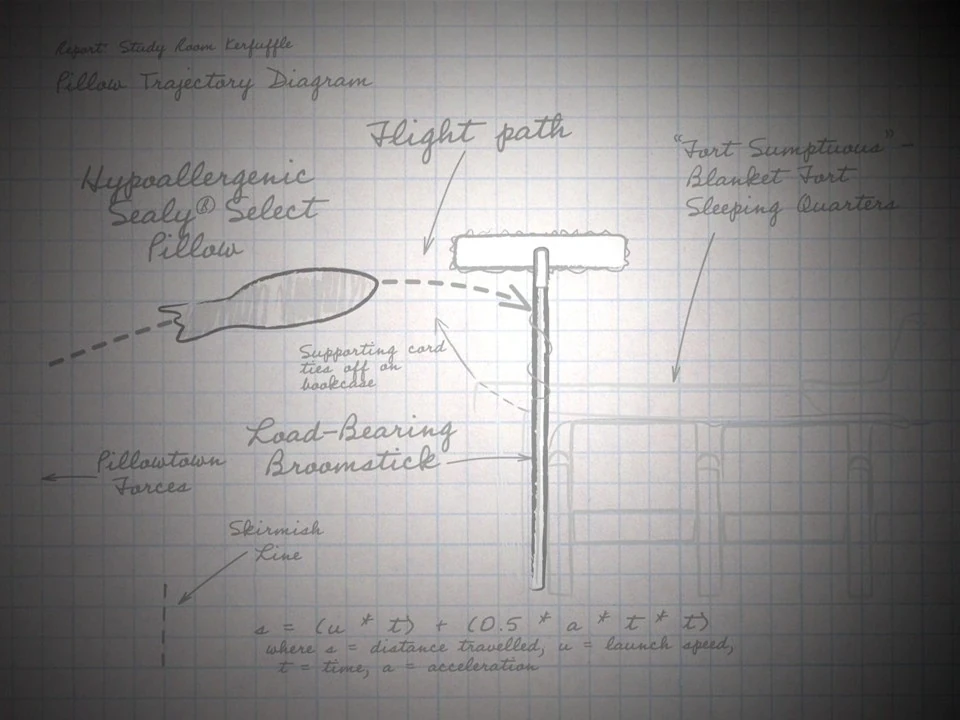 Report: Study Room Kerfuffle
Pillow Trajectory Diagram
Flight path
"Fort Sumptuous" -
Blanket Fort
Sleeping Quarters
Hypoallergenic
Sealy® Select
Pillow
Supporting cord
ties off on
bookcase
Load-Bearing
Broomstick
Pillowtown
Forces
Skirmish
Line
s = (u * t) + (0.5 * a * t * t)
where s = distance travelled, u = launch speed,
t = time, a = acceleration